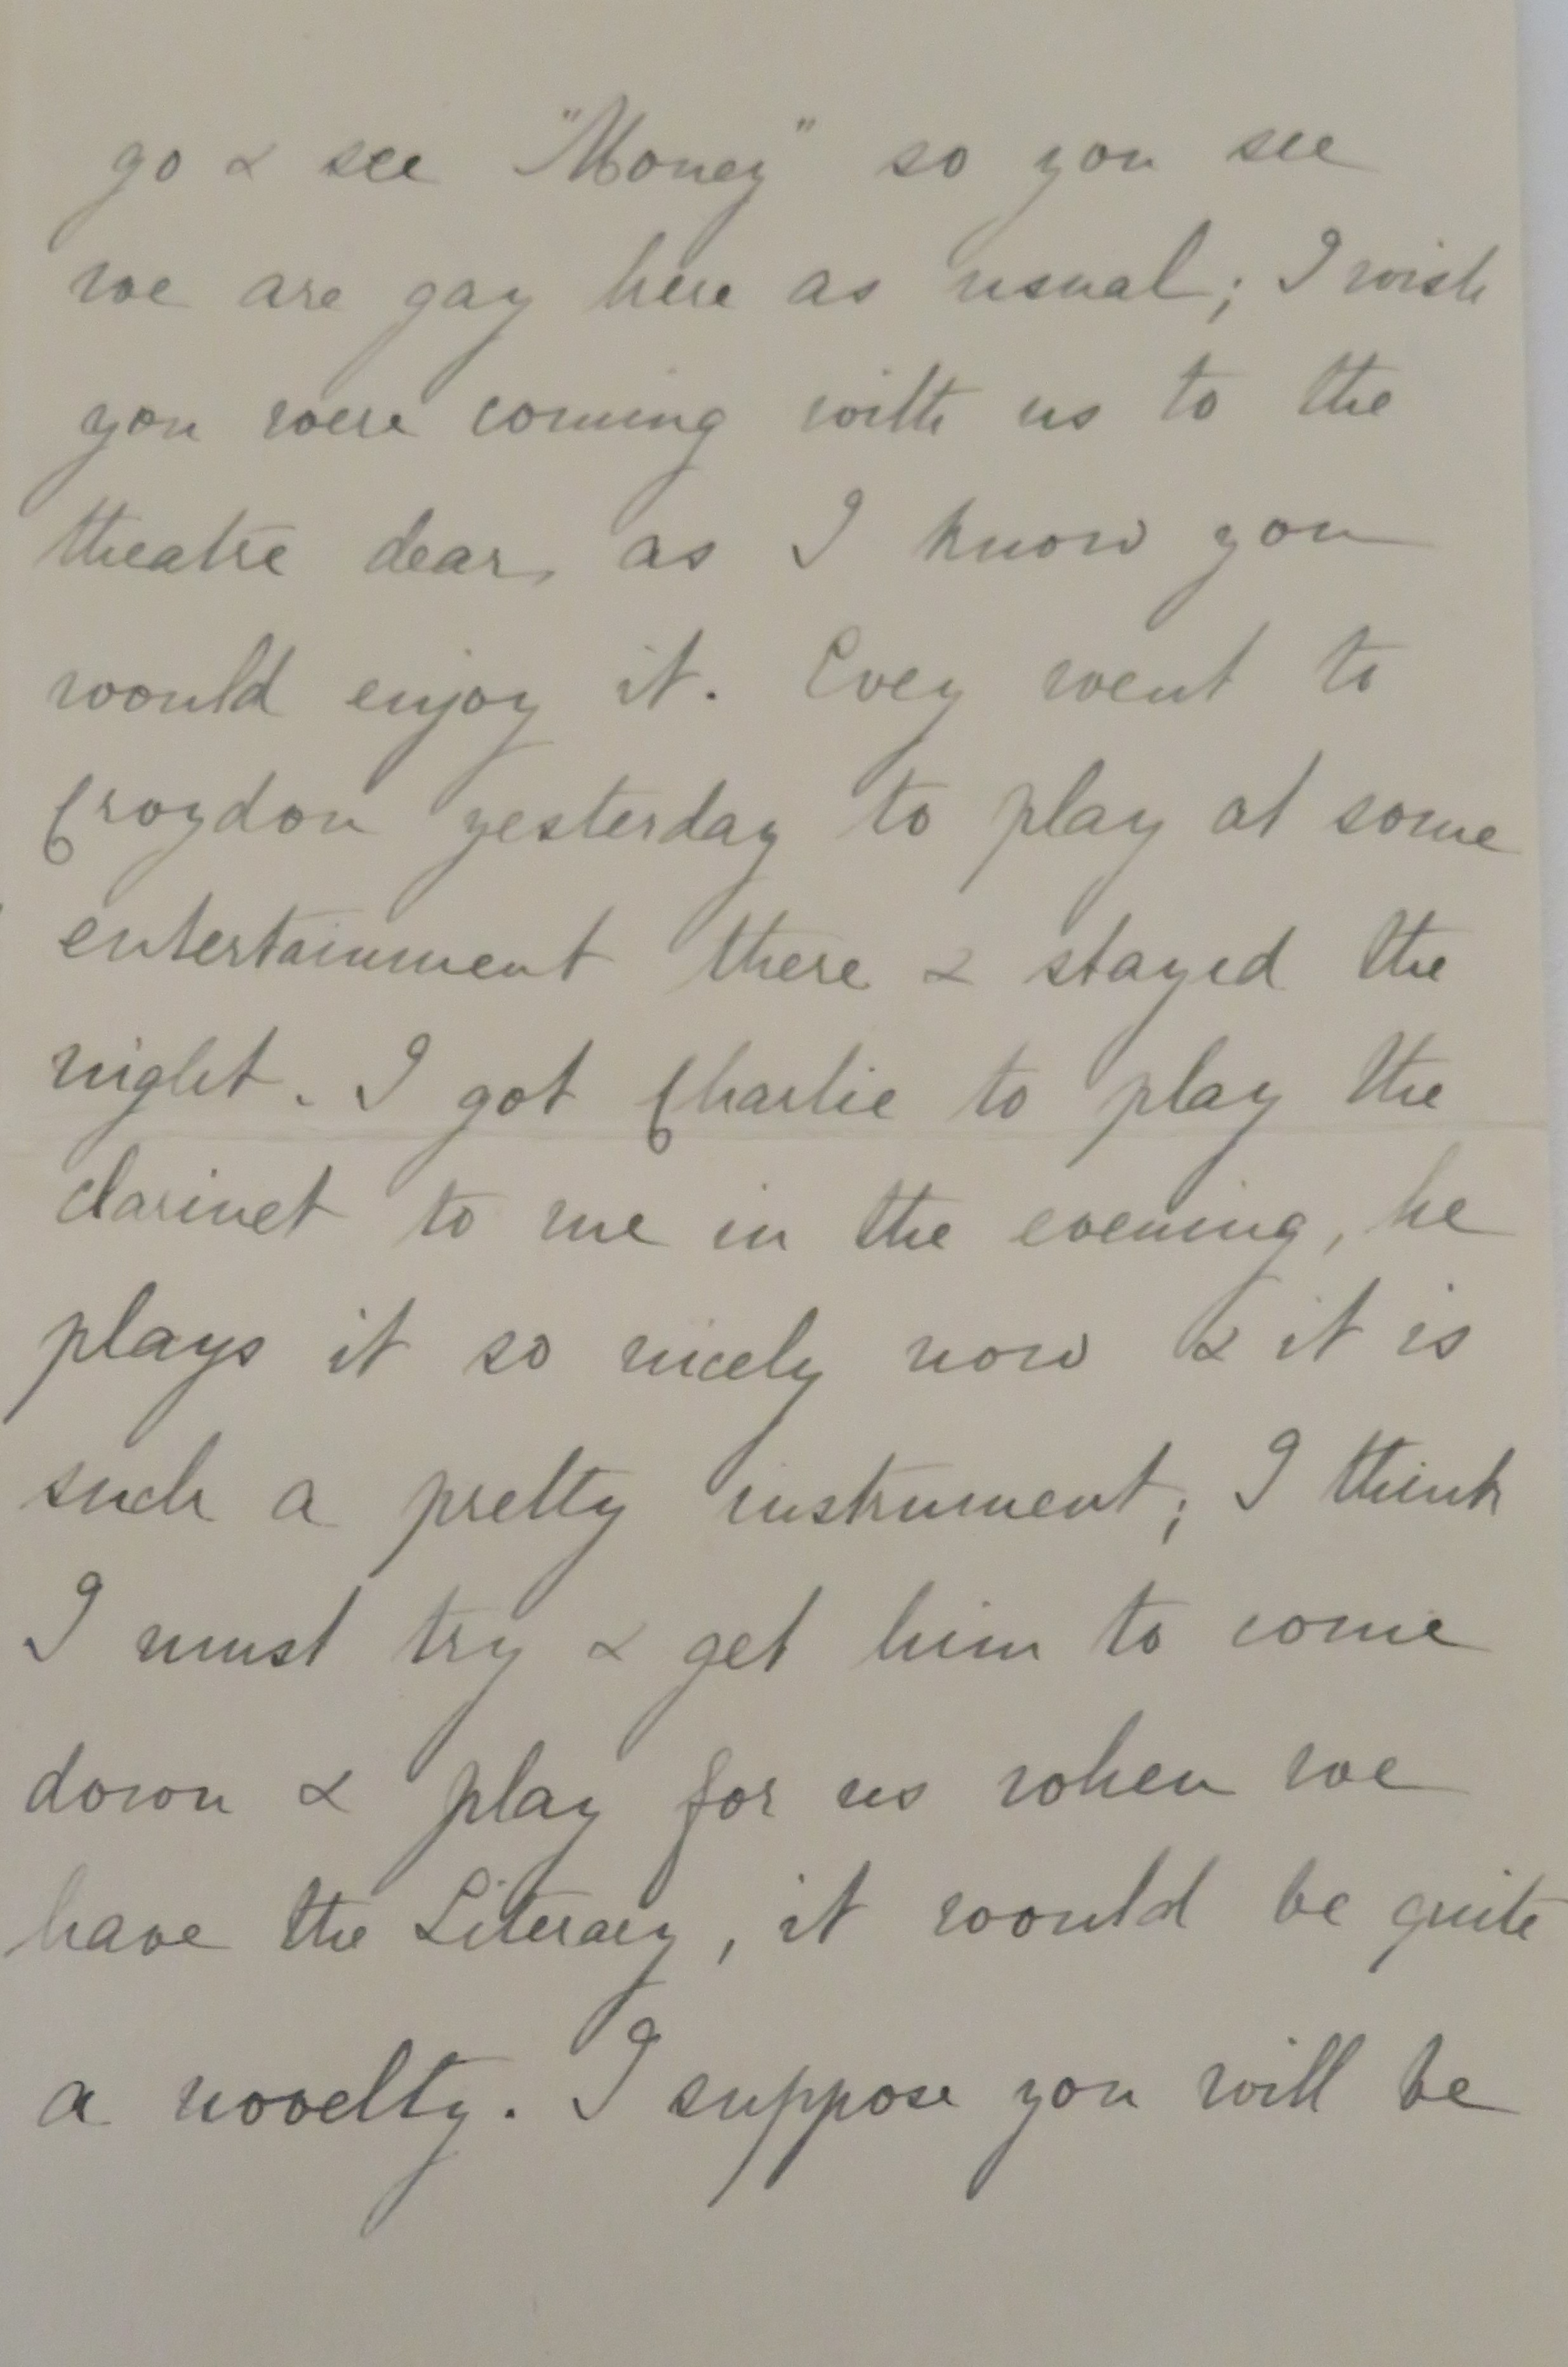 go & see "Money" so you see
we are gay here as usual; I wish
you were coming with us to the
theatre dear, as I know you
would enjoy it. Evey went to
Croydon yesterday to play at some
entertainment there & stayed the
night. I got Charlie to play the
clarinet to me in the evening, he
plays it so nicely now & it is
such a pretty instrument; I think
I must try & get him to come
down & play for us when we
have the Literary, it would be quite
a novelty. I suppose you will be